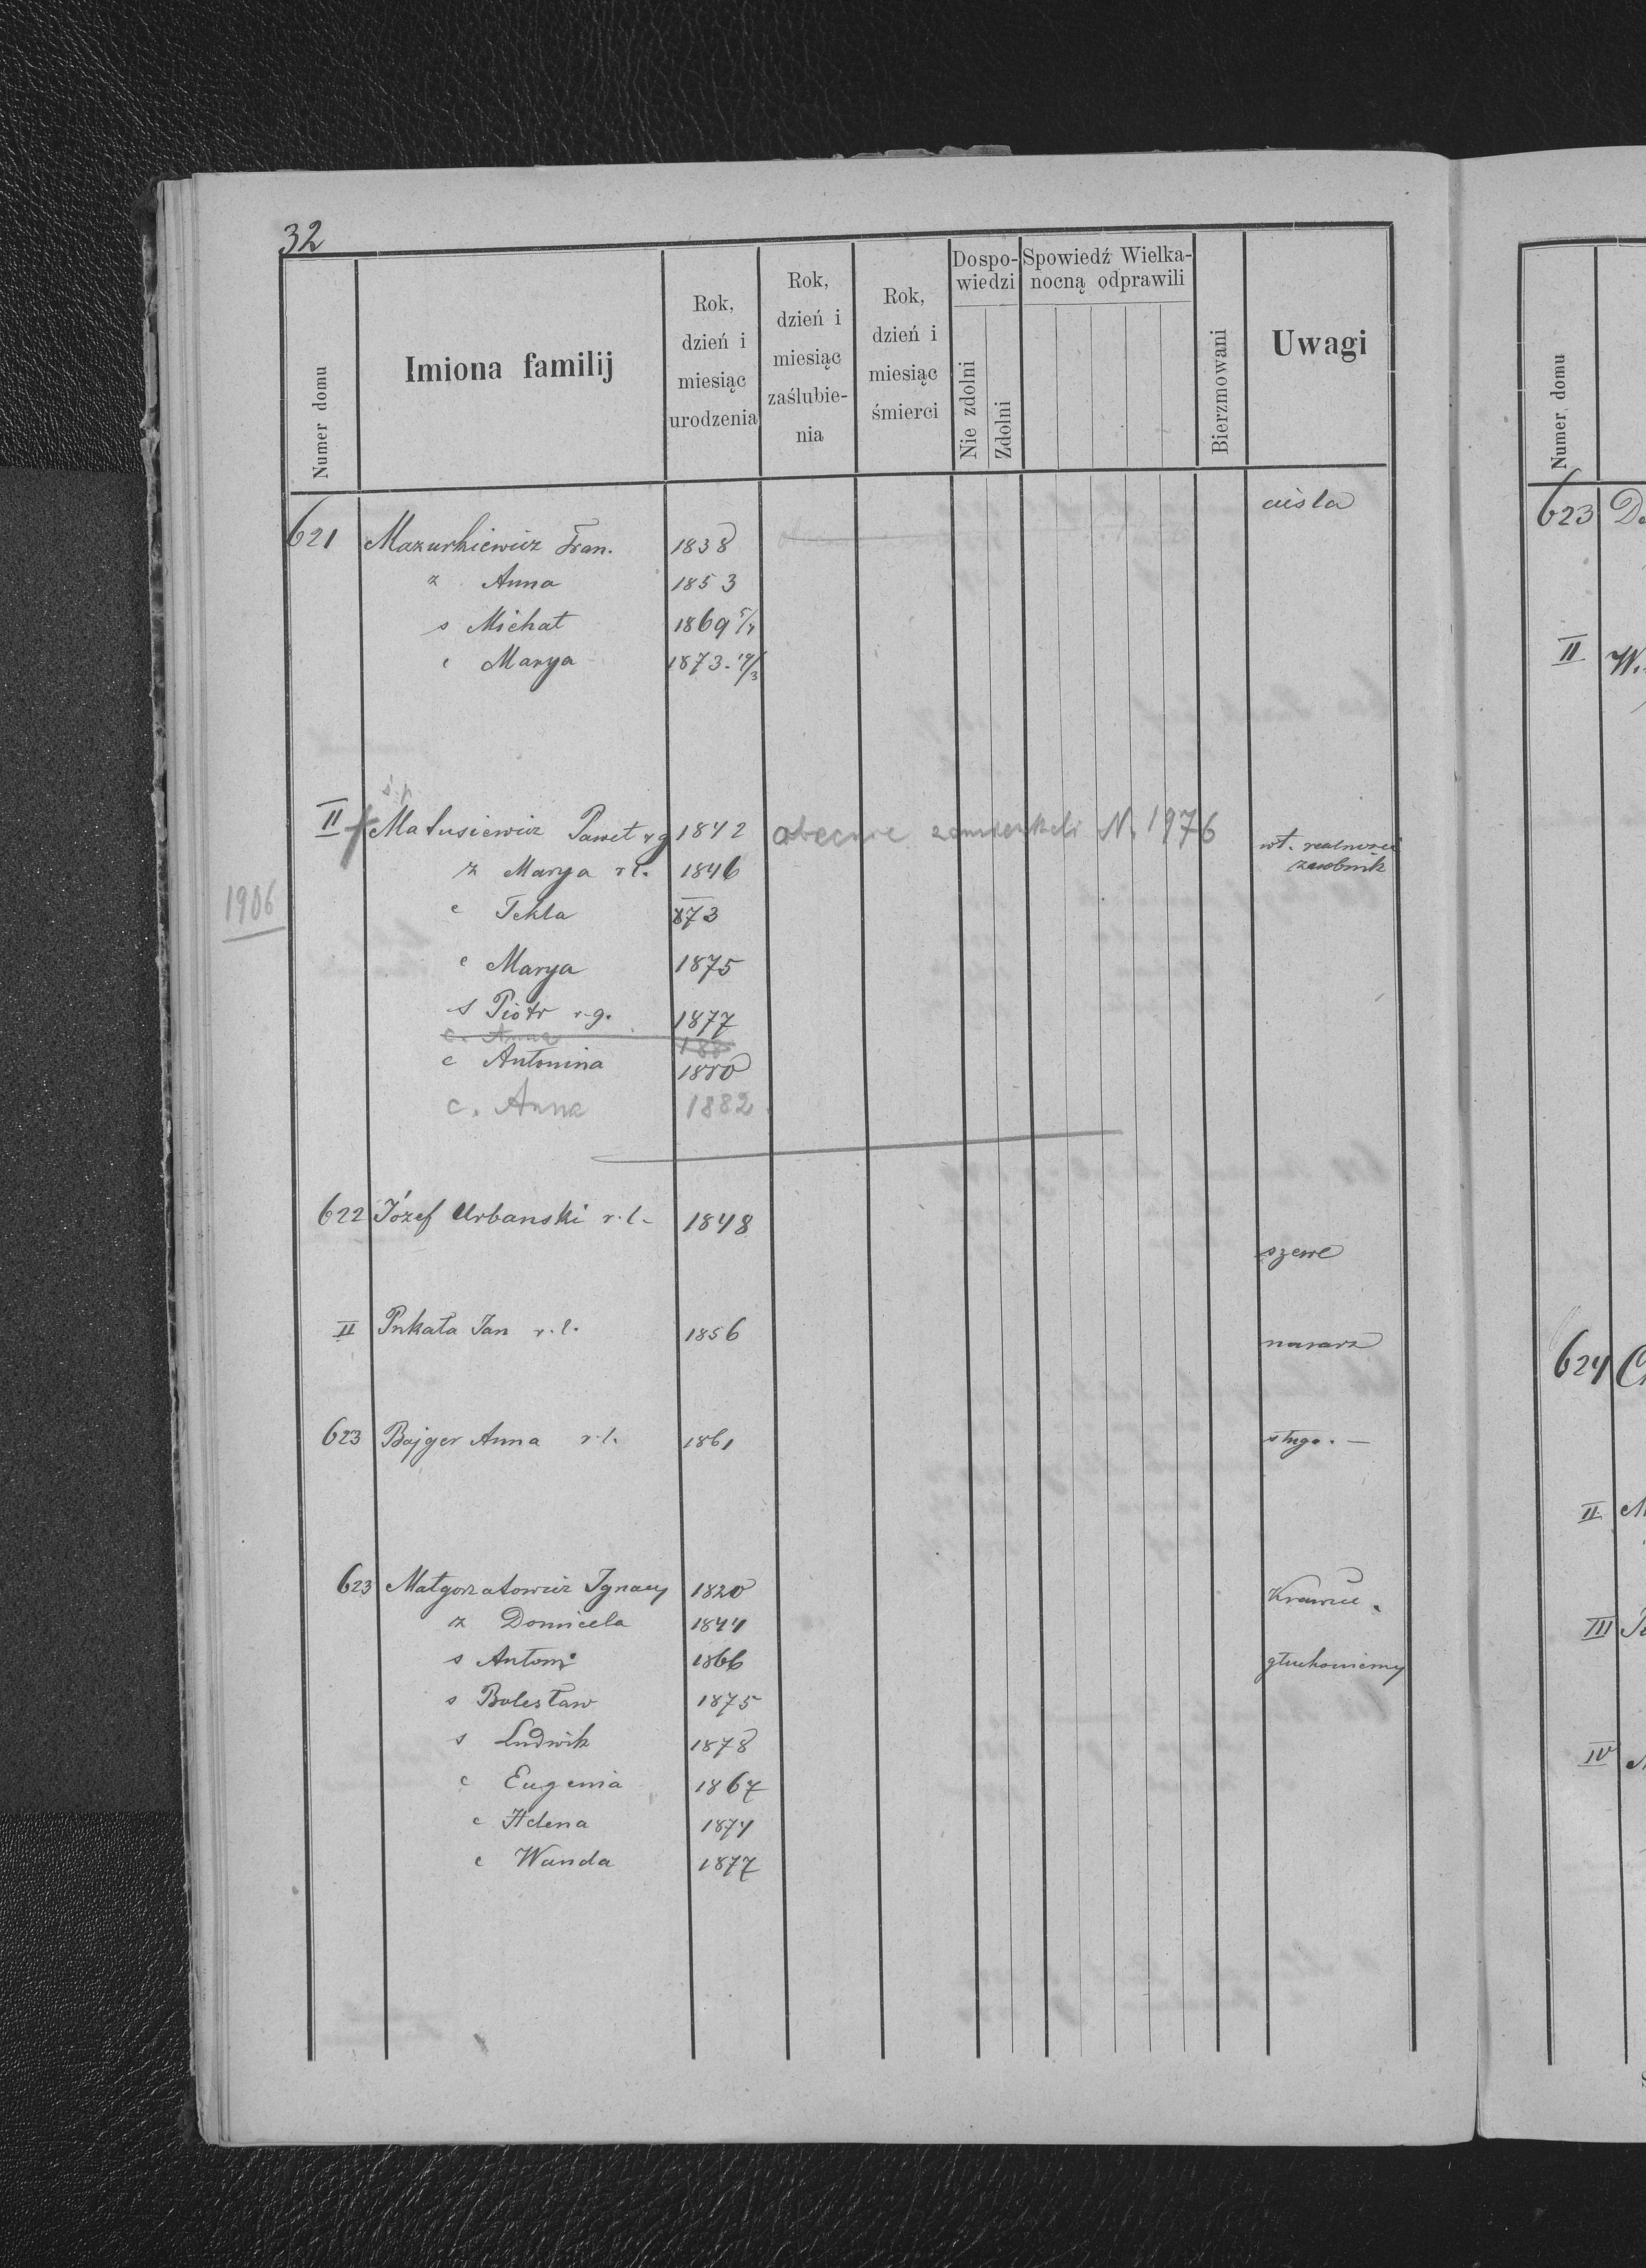 32
Numer domu
Imiona familij
Rok, dzień i miesiąc urodzenia
Rok, dzień i miesiąc zaślubie-nia
Rok, dzień i miesiąc śmierci
Dospo-wiedzi
Nie zdolni
Zdolni
Spowiedź Wielka-nocną odprawili
Bierzmowani
Uwagi
cieśla
621 Mazurkiewicz Fran. 1838
ż Anna 1853
s Michał 1869
c Marya 1873. 19/3
ś.p.
II Matusiewicz Paweł r.g. 1842 obecnie zamieszkali N. 1976 wł. realności
zarobnik
ż Marya r.l. 1846
1906
c Tekla 873
c Marya 1875
s Piotr r.g. 1877
c. Anna 188
c Antonina 1880
c. Anna 1882
622 Józef Urbanski r.l. 1848
szewc
II Jan r.l. 1856
623 Bajger Anna r.l. 1861 sługa. —
623 Małgorzatowicz Ignacy 1820 Krawiec.
ż Domicela 1844
s Antoni 1866 głuchoniemy
s Bolesław 1875
s Ludwik 1878
c Eugenia 1867
c Helena 1874
c Wanda 1877
Numer domu
623
II
624
II
III
IV